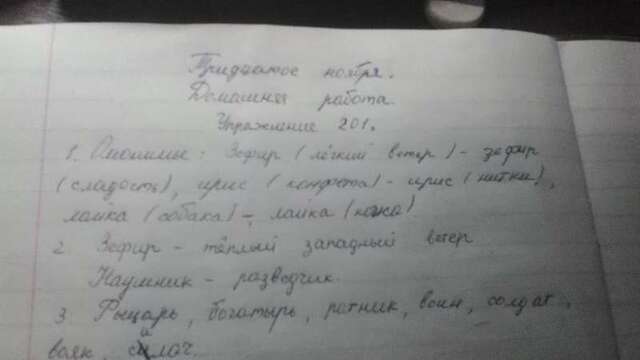 Тридцатое ноября.
Домашняя работа.
Упражнение 201.
1. Омонимы: Зефир (лёгкий ветер) - зефир
(сладость), ирис (конфета) - ирис (нитки),
лайка (собака) - лайка (кожа)
2. Зефир - тёплый западный ветер
Наумник - разводчик.
3. Рыцарь, богатырь, ратник, воин, солдат,
вояк, силач.